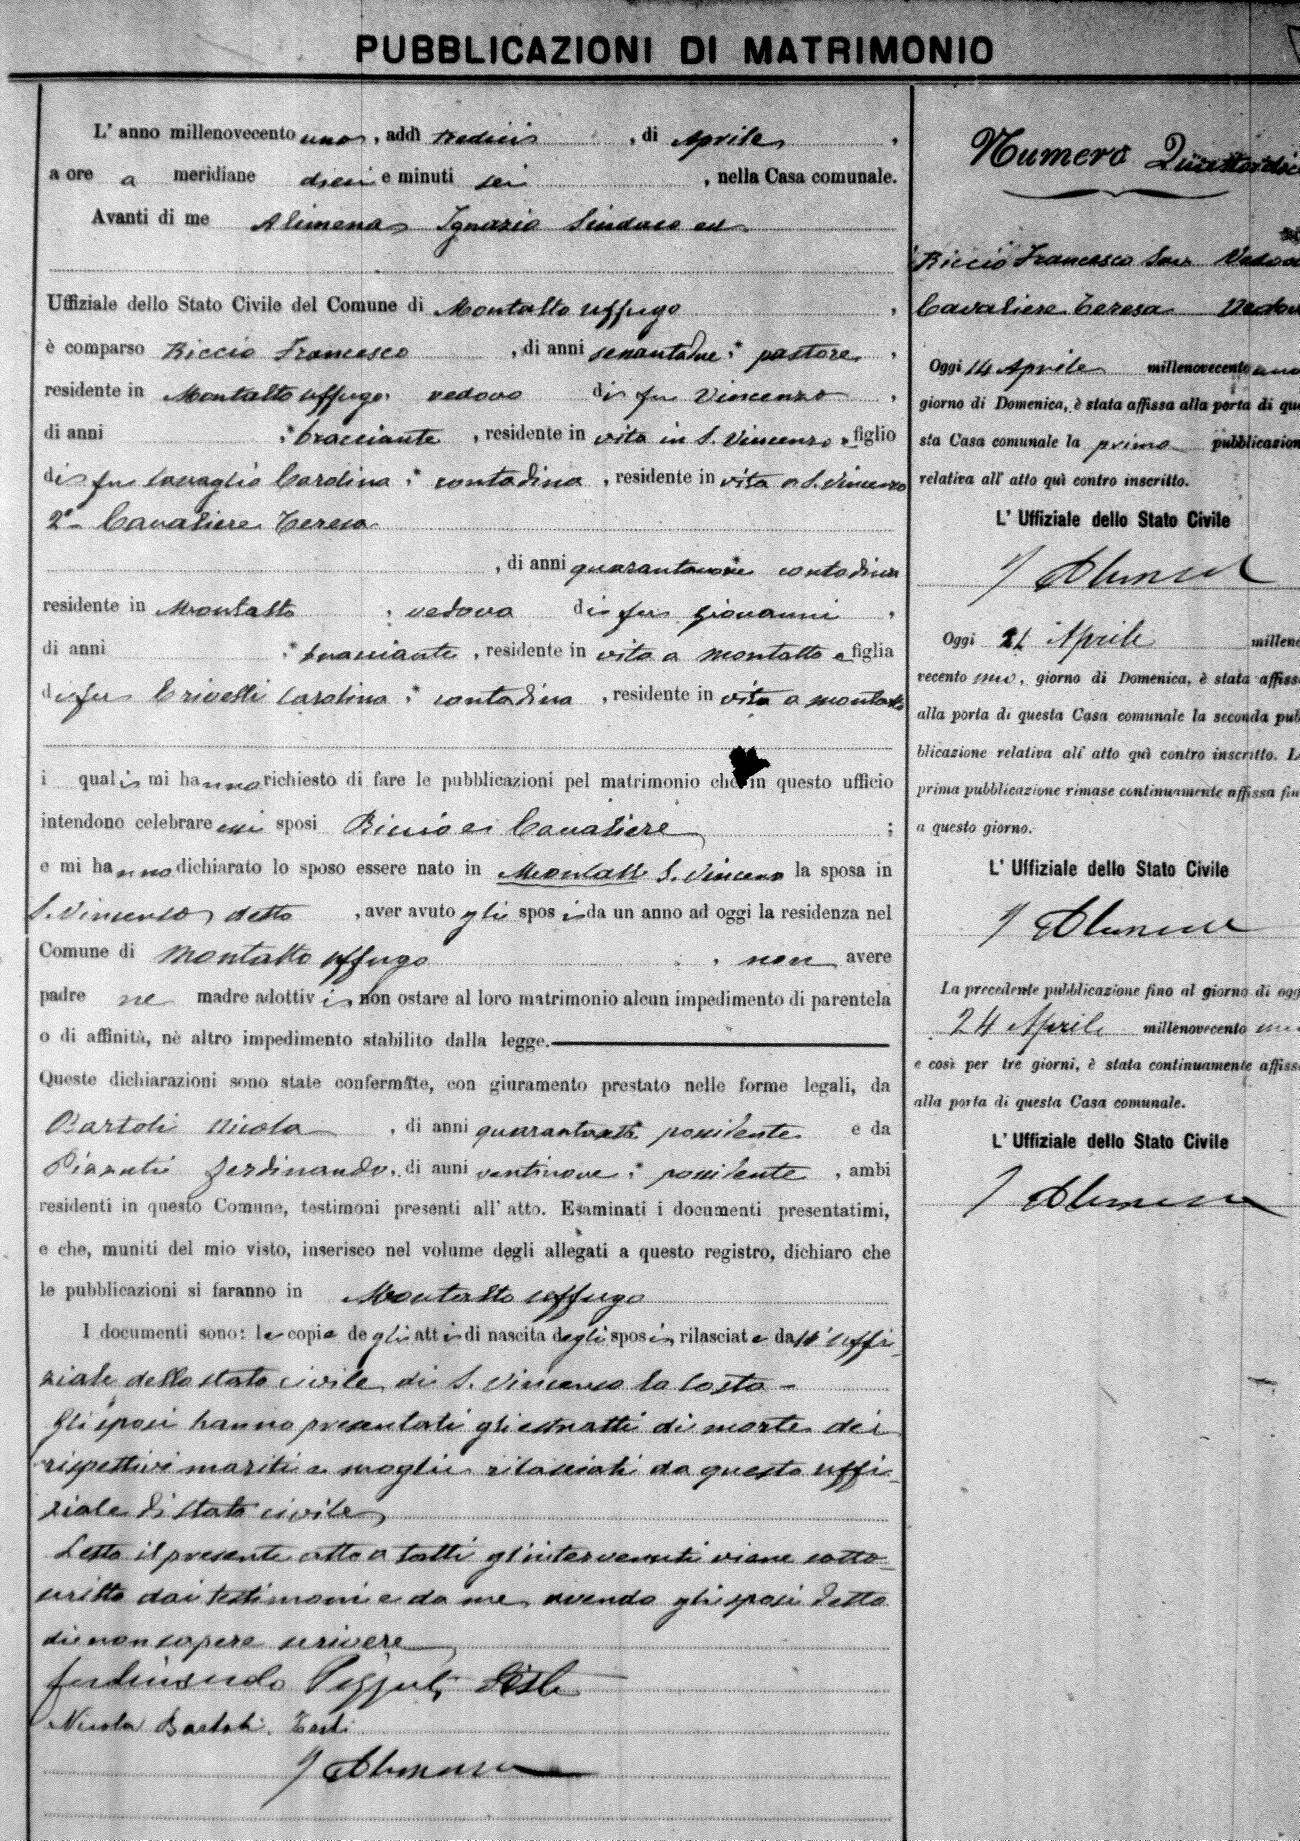 PUBBLICAZIONI DI MATRIMONIO
L' anno millenovecento uno, addì tredici, di Aprile,
a ore a meridiane dieci e minuti sei, nella Casa comunale.
Avanti di me Alimena Ignazio Sindaco ed
Uffiziale dello Stato Civile del Comune di Montalto Uffugo,
è comparso Riccio Francesco, di anni , pastore,
residente in Montalto Uffugo, vedovo di fu Vincenzo,
di anni , bracciante, residente in vita in S. Vincenzo e figlio
di fu Carolina, contadina, residente in vita a S. Vincenzo
2º Cavaliere Teresa
, di anni contadina
residente in Montalto, vedova di fu Giovanni,
di anni , bracciante, residente in vita a Montalto e figlia
di fu Crivelli Carolina, contadina, residente in vita a Montalto
i quali mi hanno richiesto di fare le pubblicazioni pel matrimonio che in questo ufficio
intendono celebrare essi sposi Riccio e Cavaliere;
e mi hanno dichiarato lo sposo essere nato in Montalto S. Vincenzo la sposa in
S. Vincenzo detto, aver avuto gli sposi da un anno ad oggi la residenza nel
Comune di Montalto Uffugo, non avere
padre ne madre adottivi non ostare al loro matrimonio alcun impedimento di parentela
o di affinità, nè altro impedimento stabilito dalla legge.
Queste dichiarazioni sono state confermate, con giuramento prestato nelle forme legali, da
Bartoli Nicola, di anni possidente e da
Pizzuti Ferdinando, di anni ventinove, possidente, ambi
residenti in questo Comune, testimoni presenti all' atto. Esaminati i documenti presentatimi,
e che, muniti del mio visto, inserisco nel volume degli allegati a questo registro, dichiaro che
le pubblicazioni si faranno in Montalto Uffugo
I documenti sono: le copie degli atti di nascita degli sposi rilasciate dall'uffi-
ziale dello stato civile di S. Vincenzo la Costa -
Gli sposi hanno presentati gli estratti di morte dei
rispettivi mariti e moglie rilasciati da questo uffi-
ziale di stato civile
Letto il presente atto a tutti gl'intervenuti viene sotto-
scritto dai testimoni e da me avendo gli sposi detto
di non sapere scrivere
Ferdinando Pizzuti Teste
Nicola Bartoli Teste
I Alimena
Numero Quattordici
Riccio Francesco Vedovo
Cavaliere Teresa Vedova
Oggi 14 Aprile millenovecento uno
giorno di Domenica, è stata affissa alla porta di que
sta Casa comunale la prima pubblicazion
relativa all' atto quì contro inscritto.
L' Uffiziale dello Stato Civile
I Alimena
Oggi 21 Aprile milleno
vecento uno, giorno di Domenica, è stata affiss
alla porta di questa Casa comunale la seconda pub
blicazione relativa all' atto quì contro inscritto. L
prima pubblicazione rimase continuamente affissa fin
a questo giorno.
L' Uffiziale dello Stato Civile
I Alimena
La precedente pubblicazione fino al giorno di ogg
24 Aprile millenovecento uno
e così per tre giorni, è stata continuamente affiss
alla porta di questa Casa comunale.
L' Uffiziale dello Stato Civile
I Alimena